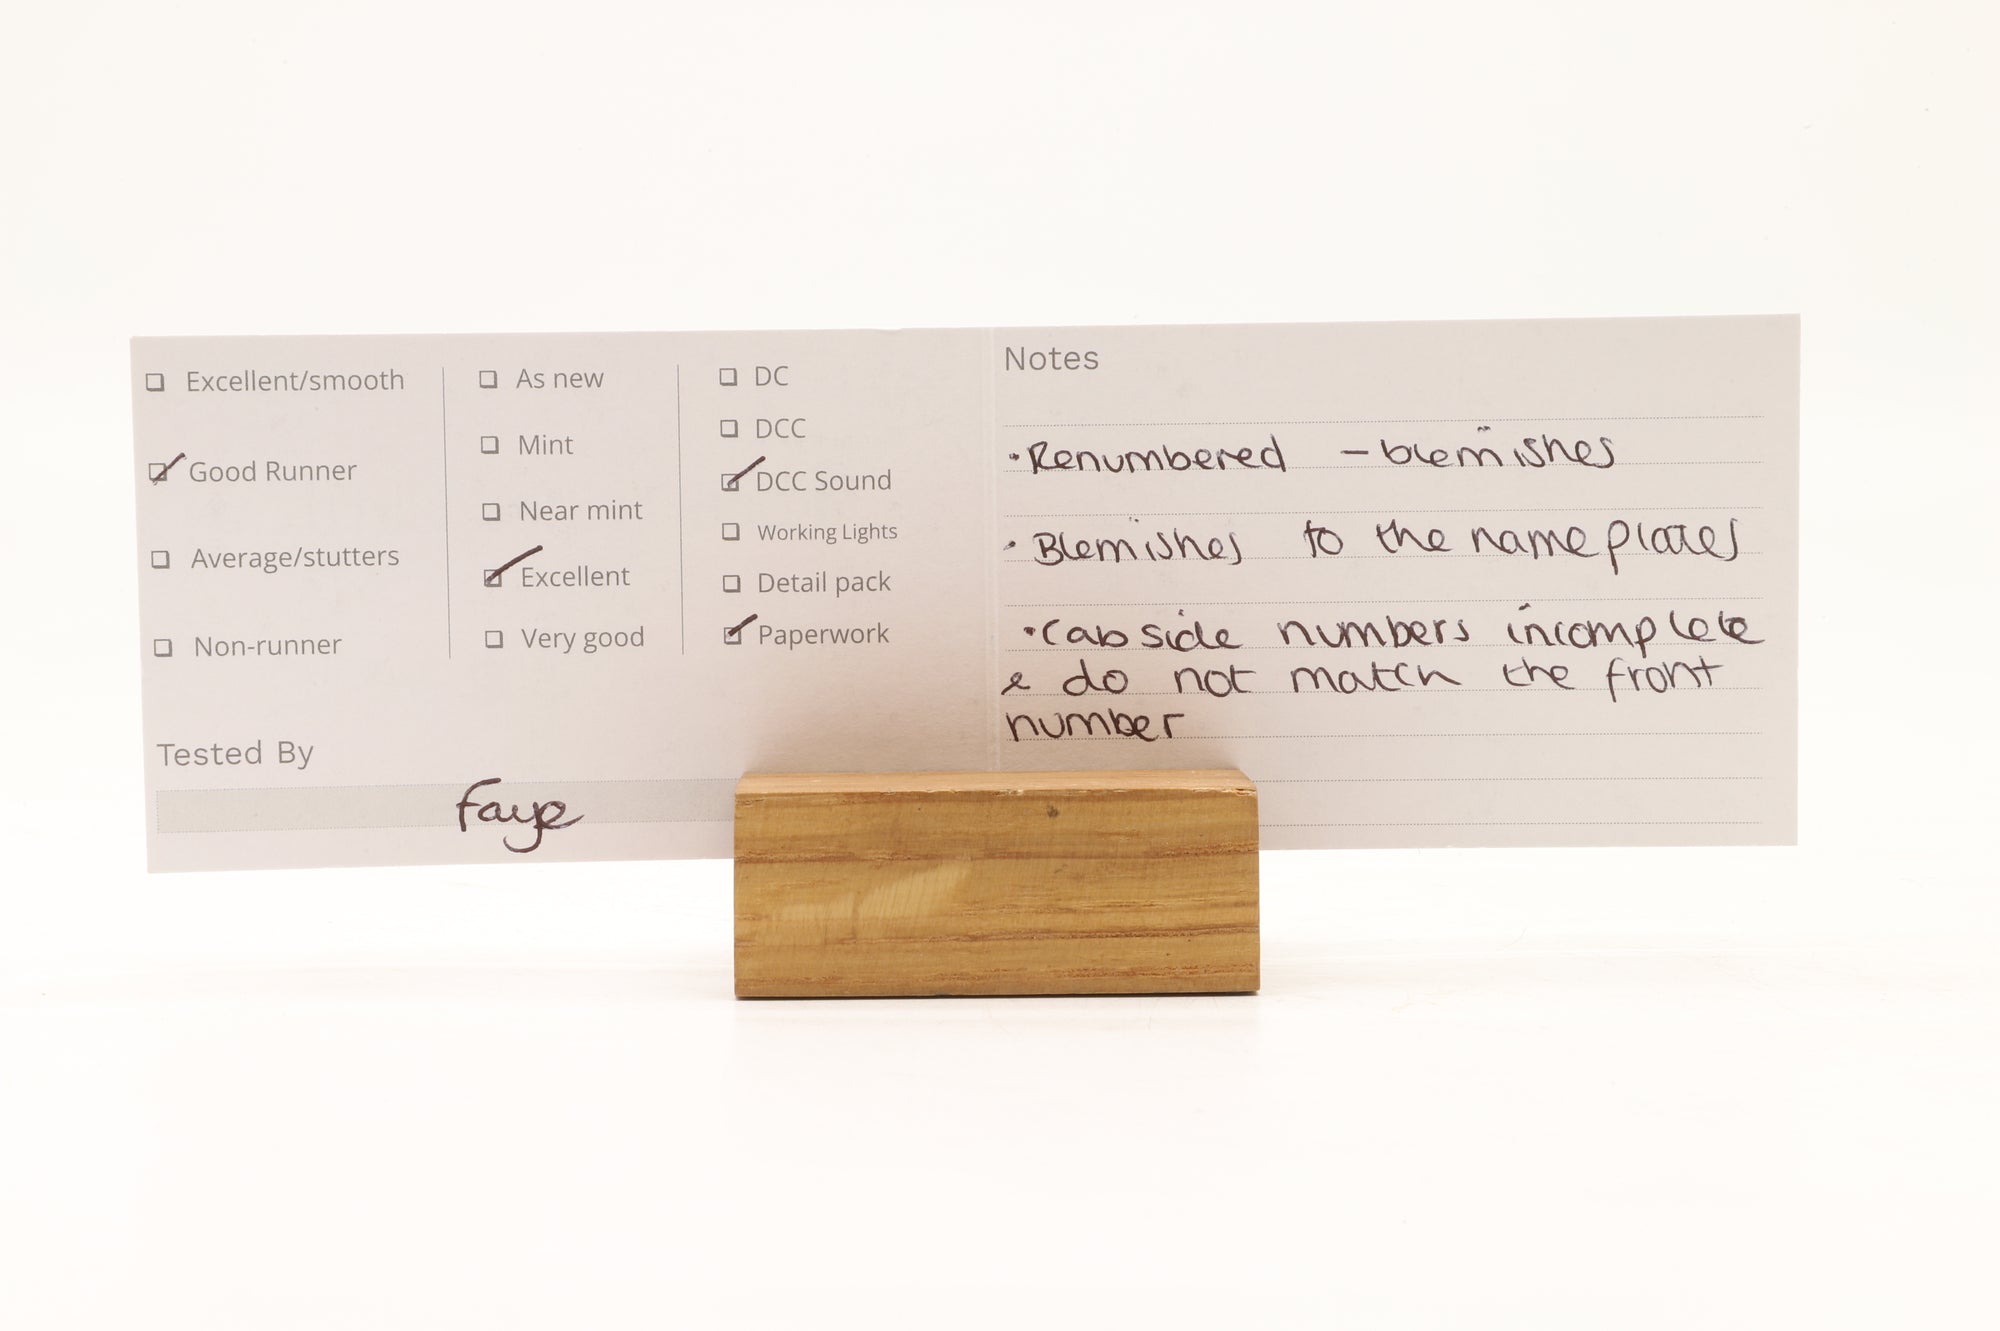 Excellent/smooth
Good Runner
Average/stutters
Non-runner
As new
Mint
Near mint
Excellent
Very good
DC
DCC
DCC Sound
Working Lights
Detail pack
Paperwork
Tested By
Faye
Notes
• Renumbered - blemishes
• Blemishes to the nameplates
• Cabside numbers incomplete
& do not match the front
number